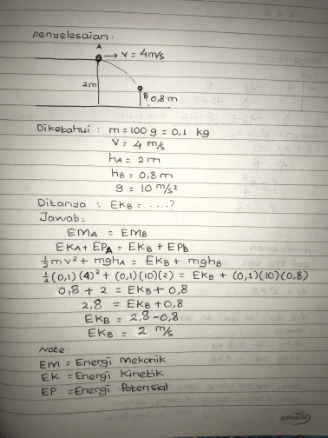 penyelesaian:
A
V = 4 m/s
2m
B 0,8 m
Diketahui : m = 100 g = 0,1 kg
V = 4 m/s
hA = 2 m
hB = 0,8 m
g = 10 m/s²
Ditanya : EKB = ....?
Jawab:
EMA = EMB
EKA + EPA = EKB + EPB
½ mv² + mghA = EKB + mghB
½ (0,1) (4)² + (0,1)(10)(2) = EKB + (0,1)(10)(0,8)
0,8 + 2 = EKB + 0,8
2,8 = EKB + 0,8
EKB = 2,8 - 0,8
EKB = 2 m/s
Note:
EM = Energi Mekanik
EK = Energi Kinetik
EP = Energi Potensial